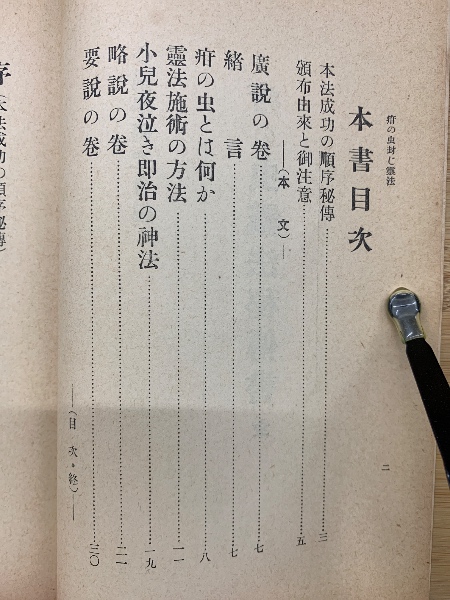 疳の虫封じ靈法
本書目次
本法成功の順序秘傳……三
頒布由來と御注意……五
――(本文)――
廣說の卷……七
緖言……七
疳の虫とは何か……八
靈法施術の方法……一一
小兒夜泣き即治の神法……一九
略說の卷……二一
要說の卷……三〇
――(目次・終)――
二
序(本法成功の順序秘傳)